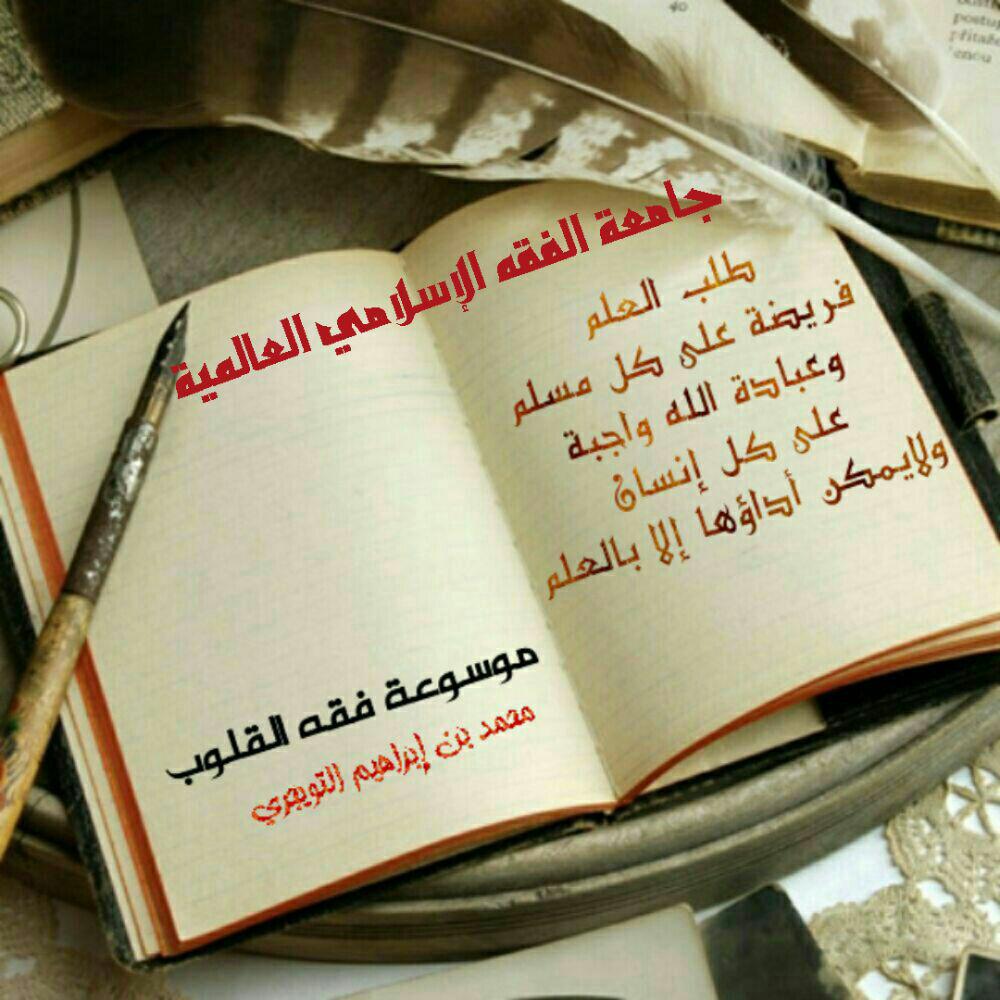 جامعة الفقه الإسلامي العالمية
طلب العلم
فريضة على كل مسلم
وعبادة الله واجبة
على كل إنسان
ولايمكن أداؤها إلا بالعلم
موسوعة فقه القلوب
محمد بن إبراهيم التويجري
40